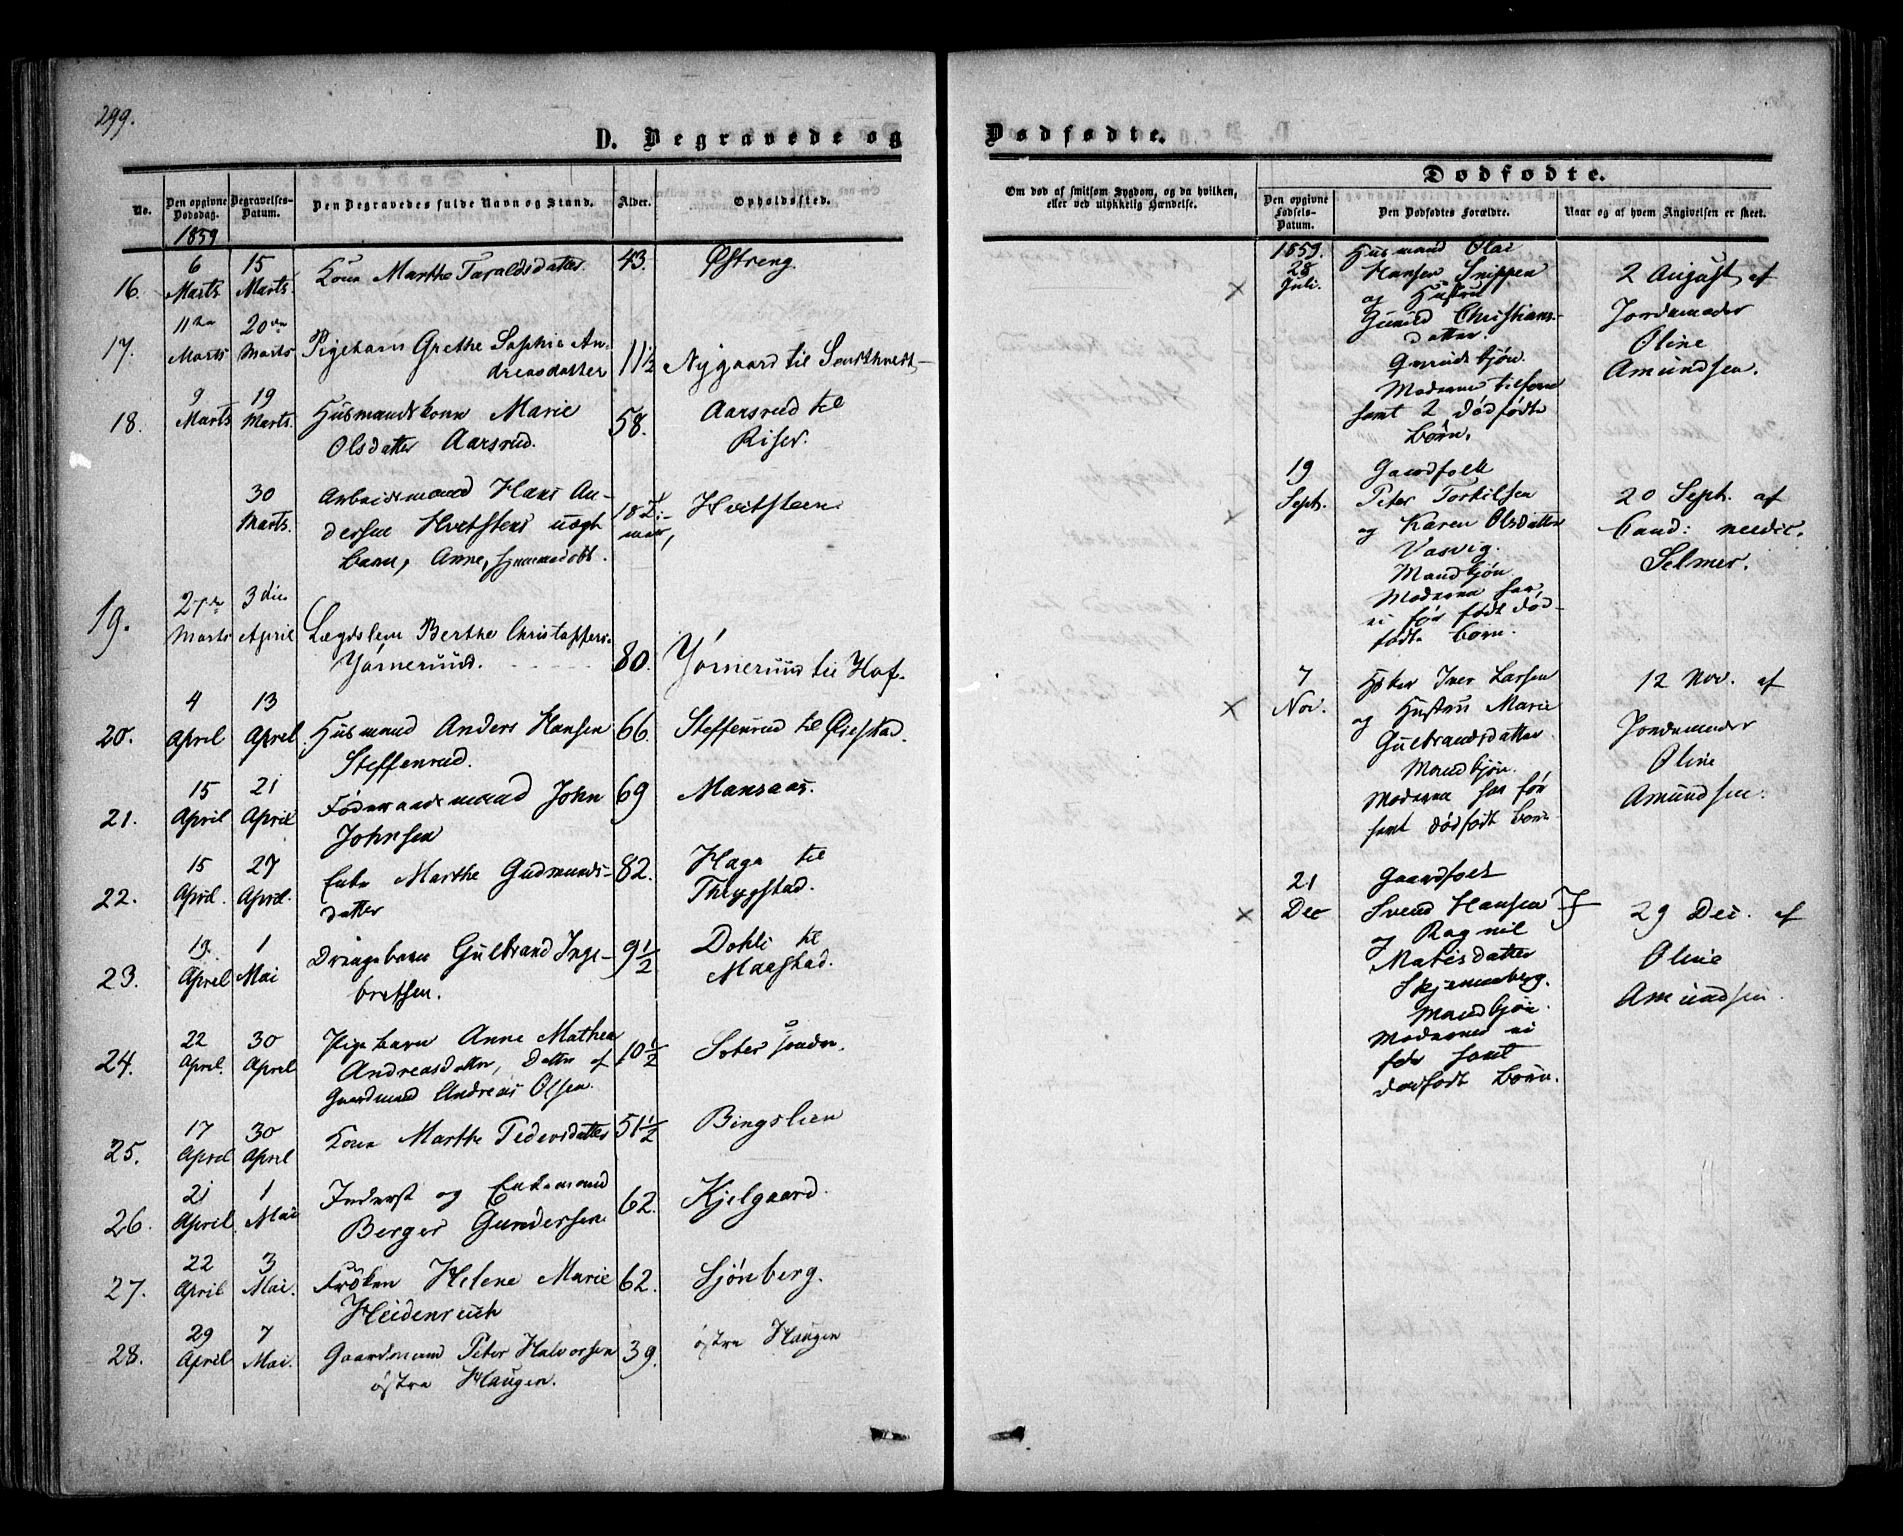 299.
D. Begravede og
No.
Den opgivne Dødsdag.
Begravelses-Datum.
Den Begravedes fulde Navn og Stand.
Alder.
Opholdssted.
1859
16. 6 Marts 15 Marts. Kone Marthe Taraldsdatter. 43. Østreng.
17. 11te Marts 20de Marts Pigebarn Grethe Sophie An-
dreasdatter 11½ Nygaard til
18. 9 Marts 19 Marts. Husmandskone Marie 58. Aarsrud til
Olsdatter Aarsrud. Riser.
30 Marts. Arbeidsmand Hans An- Hvitsteen
dersen Hvitsteens uægt
Barn, Anne, hjemmedøbt.
19. 27de Marts 3die April Lægdslem Berthe Christophers.
Yörnerund. 80. Yörnerund til Hof.
20. 4 April 13 April. Husmand Anders Hansen 66. Steffenrud til Øiestad.
Steffenrud.
21. 15 April 21 April Føderaadsmand John 69 Mansaas.
Johnsen
22. 15 April. 27 April. Enke Marthe Gudmunds- 82. Haga til
datter Thrygstad.
23. 19. April 1 Mai Drengebarn Gulbrand Inge- 9½ Dohli til
bretsen. Maastad.
24. 22 April. 30 April Pigebarn Anne Mathea 10½ Soter søndre.
Andreasdatter, Datter af
Gaardmand Andreas Olsen.
25. 17 April 30 April Kone Marthe Pedersdatter 51½ Bingslien
26. 21 April. 1 Mai Inderst og Enkemand 62. Kjelgaard.
Berger Gundersen
27. 22 April 3 Mai. Frøken Helene Marie 62. Sjönberg.
Heidenreich
28. 29 April 7 Mai. Gaardmand Peter Halvorsen 39. østra Haugen
østra Haugen.
Dødfødte.
Om død af smitsom Sygdom, og da hvilken,
eller ved ulykkelig Hændelse.
Dødfødte.
Den opgivne Fødsels-Datum.
Den Dødfødtes Forældre.
Naar og af hvem Angivelsen er skeet.
1859.
x 28 Juli. Husmand Olai
Hansen Snippen 2 August af
og Hustru Jordemoder
Gunild Christians- Oline
datter. Amundsen.
Qvindekjøn.
Moderen tilforn
født 2 dødfødte
Børn.
19 Sept. Gaardfolk
Peter Torkilsen 20 Sept. af
og Karen Olsdatter Cand: medic.
Vasvig. Selmer.
Mandkjøn
Moderen har
ei før født død-
fødte Børn.
x 7 Nov. Husm Iver Larsen 12 Nov. af
og Hustru Marie Jordemoder
Gulbrandsdatter Oline
Mandkjøn. Amundsen.
Moderen har før
født dødfødt Børn
x 21 Dec Gaardfolk
Svend Hansen 29 Dec. af
og Ragnil Oline
Mathisdatter Amundsen.
Skjenneberg.
Mandkjøn.
Moderen ei
før født
dødfødt Børn.